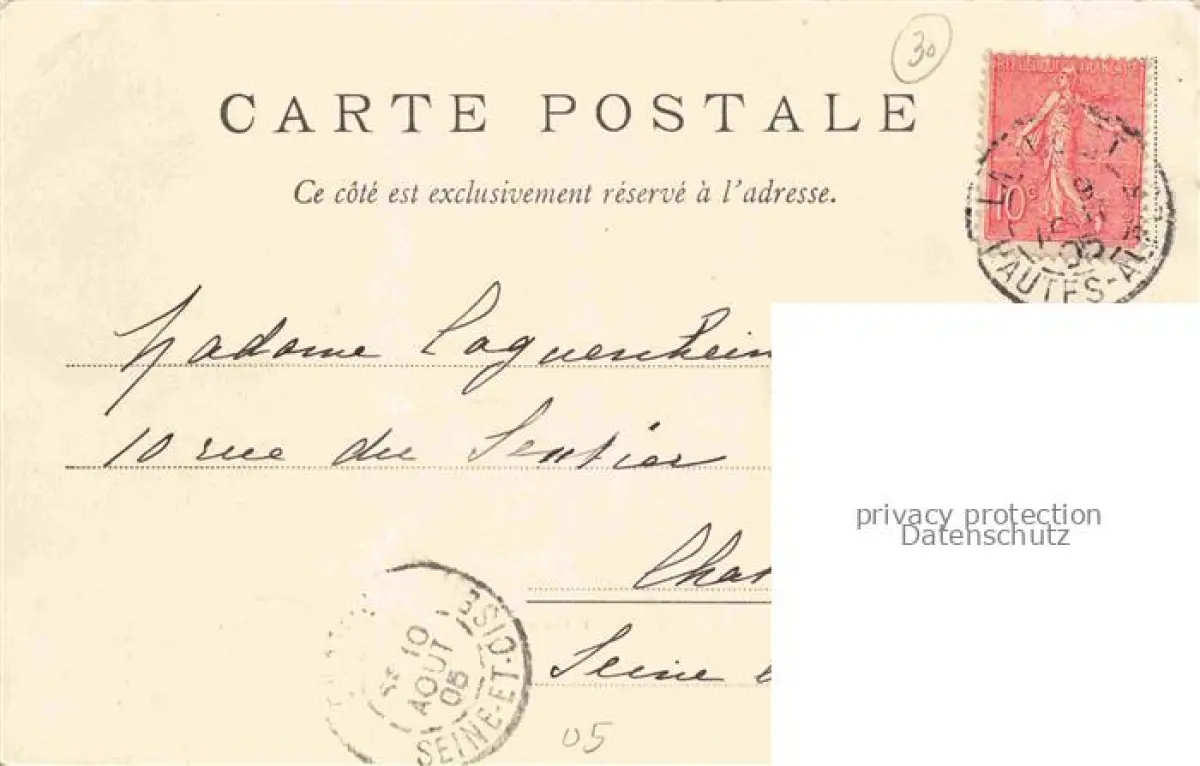 30
REPUBLIQUE FRANÇAISE
10c
CARTE POSTALE
Ce côté est exclusivement réservé à l'adresse.
05
HAUTES-ALPES
Madame Laguenheim
10 rue du Sentier
privacy protection
Datenschutz
Char
Seine
10
AOUT
05
SEINE-ET-OISE
05